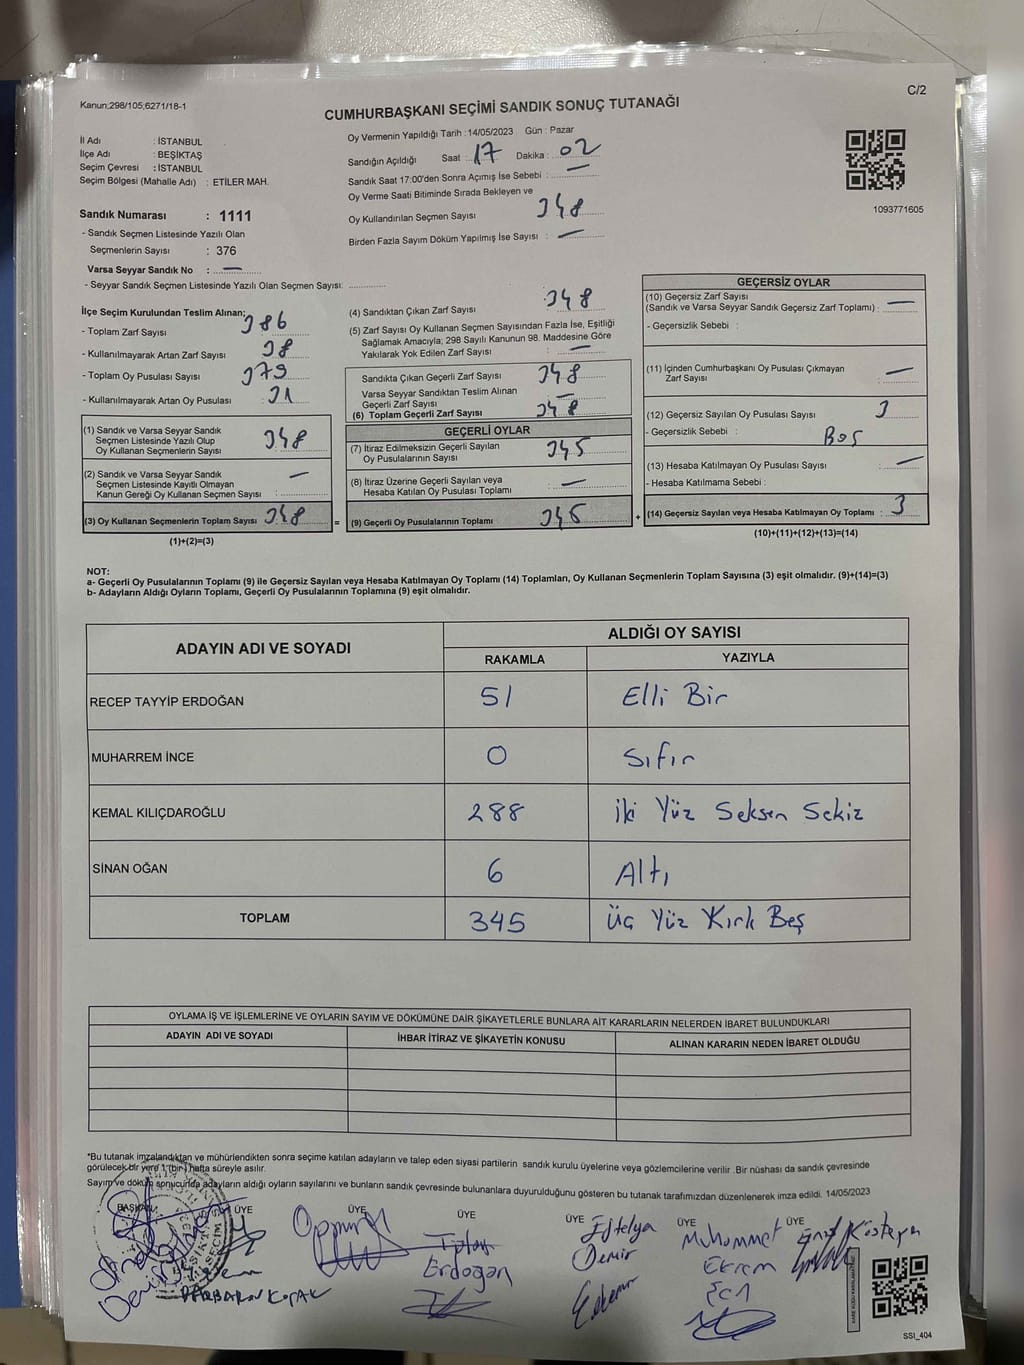 Kanun;298/105;6271/18-1
C/2
CUMHURBAŞKANI SEÇİMİ SANDIK SONUÇ TUTANAĞI
İl Adı : İSTANBUL
İlçe Adı : BEŞİKTAŞ
Seçim Çevresi : İSTANBUL
Seçim Bölgesi (Mahalle Adı) : ETİLER MAH.
Sandık Numarası : 1111
- Sandık Seçmen Listesinde Yazılı Olan
Seçmenlerin Sayısı : 376
Varsa Seyyar Sandık No : —
- Seyyar Sandık Seçmen Listesinde Yazılı Olan Seçmen Sayısı:
Oy Vermenin Yapıldığı Tarih :14/05/2023 Gün : Pazar
Sandığın Açıldığı Saat : 17 Dakika : 02
Sandık Saat 17:00'den Sonra Açımış İse Sebebi : —
Oy Verme Saati Bitiminde Sırada Bekleyen ve
Oy Kullandırılan Seçmen Sayısı 348
Birden Fazla Sayım Döküm Yapılmış İse Sayısı : —
1093771605
İlçe Seçim Kurulundan Teslim Alınan:
- Toplam Zarf Sayısı : 386
- Kullanılmayarak Artan Zarf Sayısı : 38
- Toplam Oy Pusulası Sayısı : 379
- Kullanılmayarak Artan Oy Pusulası : 31
(1) Sandık ve Varsa Seyyar Sandık
Seçmen Listesinde Yazılı Olup
Oy Kullanan Seçmenlerin Sayısı : 348
(2) Sandık ve Varsa Seyyar Sandık
Seçmen Listesinde Kayıtlı Olmayan
Kanun Gereği Oy Kullanan Seçmen Sayısı : —
(3) Oy Kullanan Seçmenlerin Toplam Sayısı : 348
(1)+(2)=(3)
(4) Sandıktan Çıkan Zarf Sayısı : 348
(5) Zarf Sayısı Oy Kullanan Seçmen Sayısından Fazla İse, Eşitliği
Sağlamak Amacıyla; 298 Sayılı Kanunun 98. Maddesine Göre
Yakılarak Yok Edilen Zarf Sayısı : —
Sandıkta Çıkan Geçerli Zarf Sayısı : 348
Varsa Seyyar Sandıktan Teslim Alınan
Geçerli Zarf Sayısı : —
(6) Toplam Geçerli Zarf Sayısı : 348
GEÇERLİ OYLAR
(7) İtiraz Edilmeksizin Geçerli Sayılan
Oy Pusulalarının Sayısı : 345
(8) İtiraz Üzerine Geçerli Sayılan veya
Hesaba Katılan Oy Pusulası Toplamı : —
= (9) Geçerli Oy Pusulalarının Toplamı : 345
GEÇERSİZ OYLAR
(10) Geçersiz Zarf Sayısı
(Sandık ve Varsa Seyyar Sandık Geçersiz Zarf Toplamı) : —
- Geçersizlik Sebebi :
(11) İçinden Cumhurbaşkanı Oy Pusulası Çıkmayan
Zarf Sayısı : —
(12) Geçersiz Sayılan Oy Pusulası Sayısı : 3
- Geçersizlik Sebebi : Boş
(13) Hesaba Katılmayan Oy Pusulası Sayısı : —
- Hesaba Katılmama Sebebi :
+ (14) Geçersiz Sayılan veya Hesaba Katılmayan Oy Toplamı : 3
(10)+(11)+(12)+(13)=(14)
NOT:
a- Geçerli Oy Pusulalarının Toplamı (9) ile Geçersiz Sayılan veya Hesaba Katılmayan Oy Toplamı (14) Toplamları, Oy Kullanan Seçmenlerin Toplam Sayısına (3) eşit olmalıdır. (9)+(14)=(3)
b- Adayların Aldığı Oyların Toplamı, Geçerli Oy Pusulalarının Toplamına (9) eşit olmalıdır.
ADAYIN ADI VE SOYADI
ALDIĞI OY SAYISI
RAKAMLA YAZIYLA
RECEP TAYYİP ERDOĞAN 51 Elli Bir
MUHARREM İNCE 0 Sıfır
KEMAL KILIÇDAROĞLU 288 İki Yüz Seksen Sekiz
SİNAN OĞAN 6 Altı
TOPLAM 345 Üç Yüz Kırk Beş
OYLAMA İŞ VE İŞLEMLERİNE VE OYLARIN SAYIM VE DÖKÜMÜNE DAİR ŞİKAYETLERLE BUNLARA AİT KARARLARIN NELERDEN İBARET BULUNDUKLARI
ADAYIN ADI VE SOYADI İHBAR İTİRAZ VE ŞİKAYETİN KONUSU ALINAN KARARIN NEDEN İBARET OLDUĞU
*Bu tutanak imzalandıktan ve mühürlendikten sonra seçime katılan adayların ve talep eden siyasi partilerin sandık kurulu üyelerine veya gözlemcilerine verilir .Bir nüshası da sandık çevresinde
görülecek bir yere 1 (bir) hafta süreyle asılır.
Sayım ve döküm sonucunda adayların aldığı oyların sayılarını ve bunların sandık çevresinde bulunanlara duyurulduğunu gösteren bu tutanak tarafımızdan düzenlenerek imza edildi. 14/05/2023
BAŞKAN ÜYE ÜYE ÜYE ÜYE ÜYE
Erdoğan
Eftelya
Demir
Muhammet
Ekrem
SSI_404